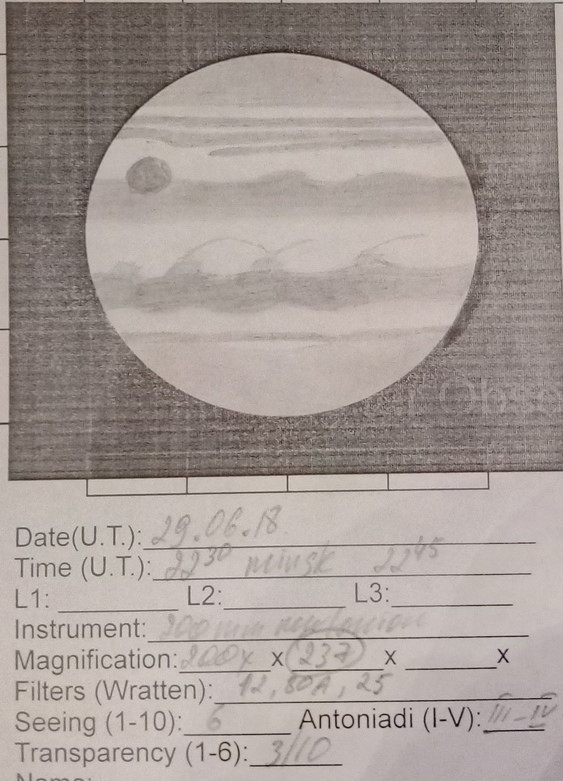 Obse
Date(U.T.): 29.06.18
Time (U.T.): 22³⁰ minsk 22⁴⁵
L1: L2: L3:
Instrument: 200 mm newtonian
Magnification: 200x x 237 x x
Filters (Wratten): 12, 80A, 25
Seeing (1-10): 6 Antoniadi (I-V): III-IV
Transparency (1-6): 3/10
Name: